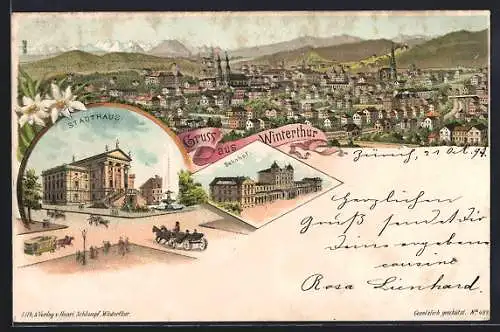 STADTHAUS
Gruss aus Winterthur
Bahnhof.
Zürich, 21 Okt. 97
Herzlichen
Gruß sendet dir
deine ergebene
cousine
Rosa Lienhard.
Lith. & Verlag v. Henri Schlumpf, Winterthur.
Gesetzlich geschützt. Nº